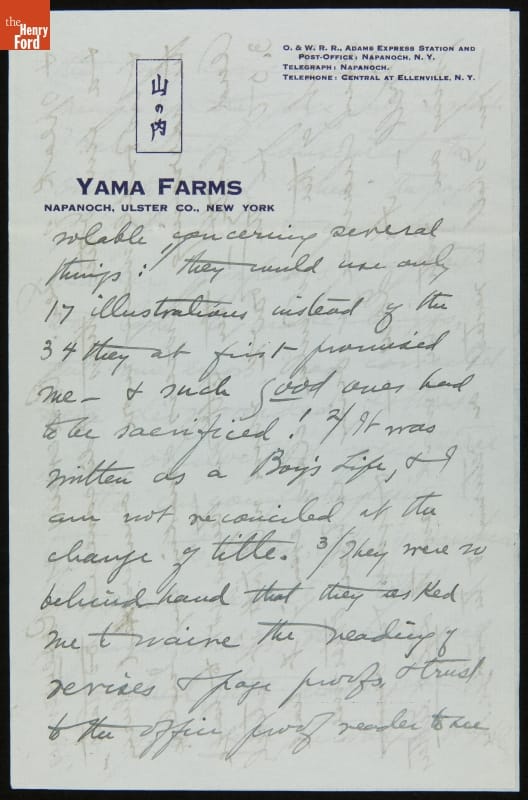 the
Henry
Ford
O. & W. R. R., Adams Express Station and
Post-Office: Napanoch, N. Y.
Telegraph: Napanoch.
Telephone: Central at Ellenville, N. Y.
山の内
Yama Farms
Napanoch, Ulster Co., New York
solable concerning several
things: they would use only
17 illustrations instead of the
34 they at first promised
me – & such good ones had
to be sacrificed! 2/ It was
written as a Boy's Life, & I
am not reconciled at the
change of title. 3/ They were so
behind hand that they asked
me to waive the reading of
revises & page proofs, & trust
to the office proof reader to see